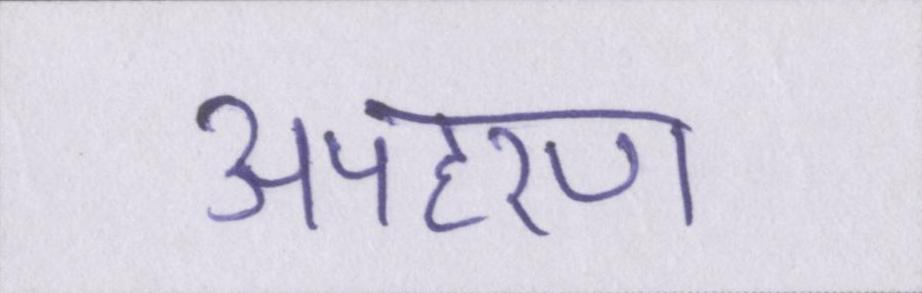 अपहरण